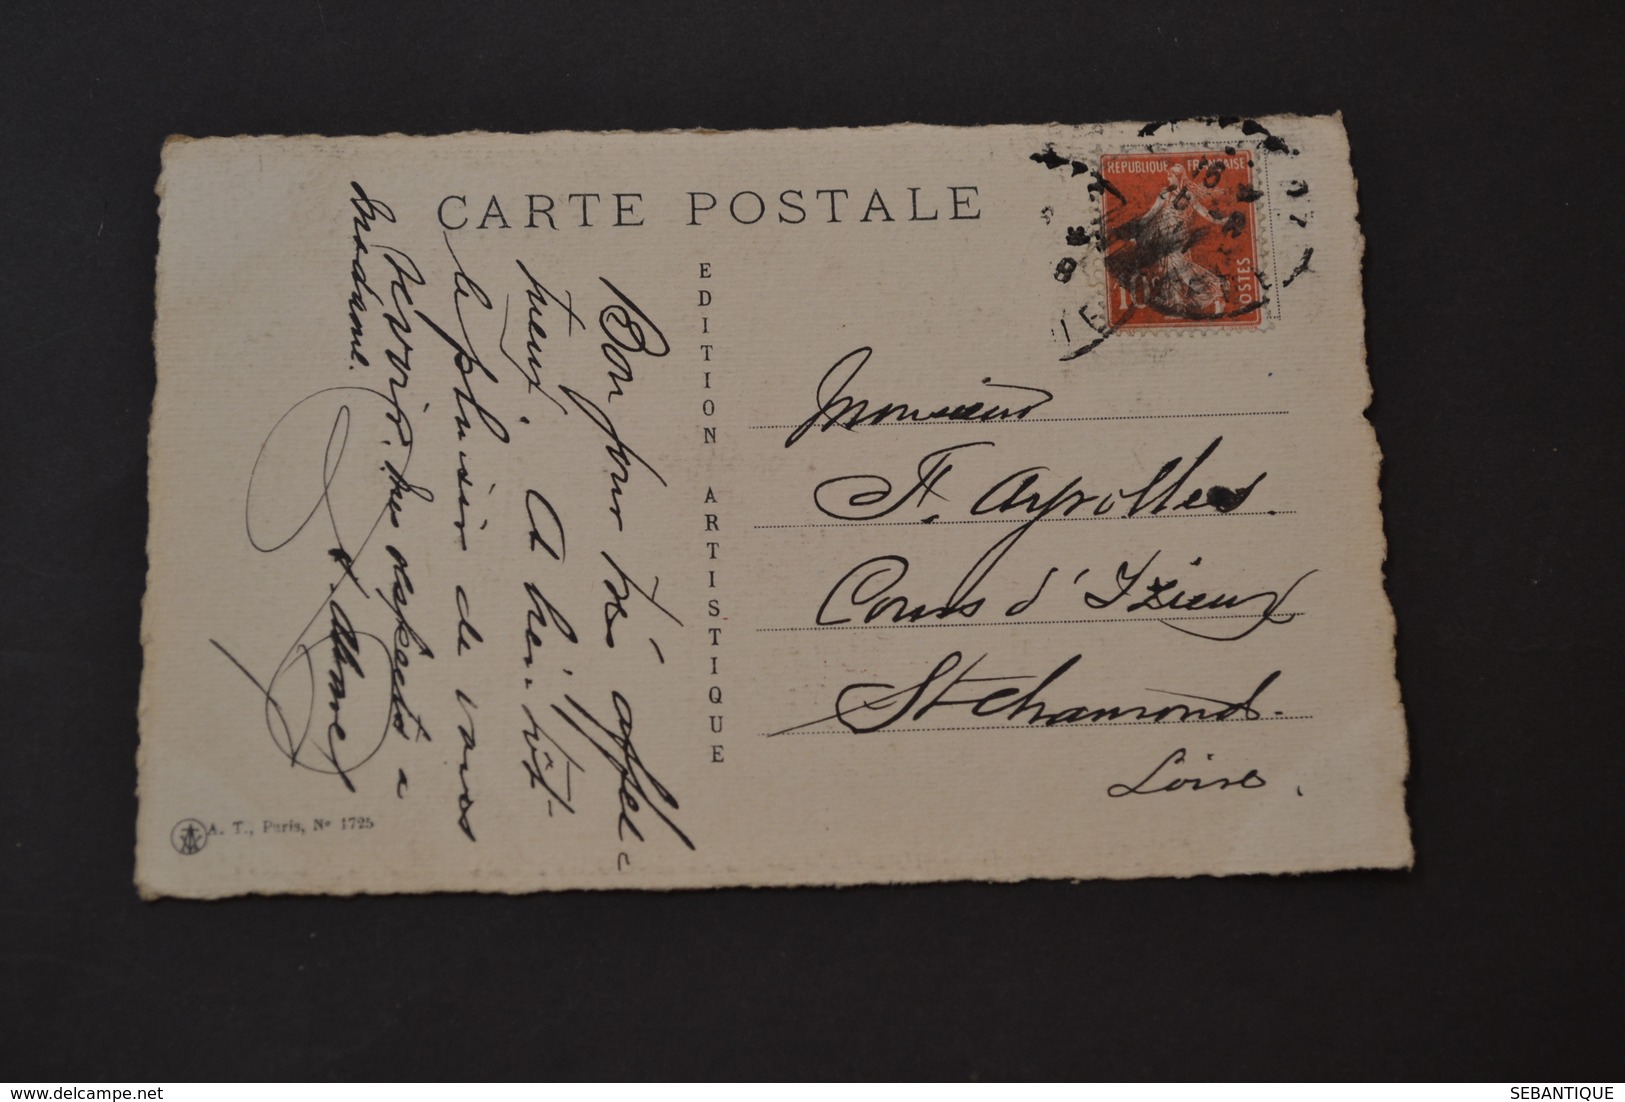 CARTE POSTALE
EDITION ARTISTIQUE
RÉPUBLIQUE FRANÇAISE
10
POSTES
Bonjour très affec=
tueux. A bientôt
le plaisir de vous
revoir. Mes respects a
Madame.
Monsieur
F. Ayrolles.
Cours d'Izieux
St Chamond.
Loire.
A. T., Paris, No 1725
delcampe.net
SEBANTIQUE